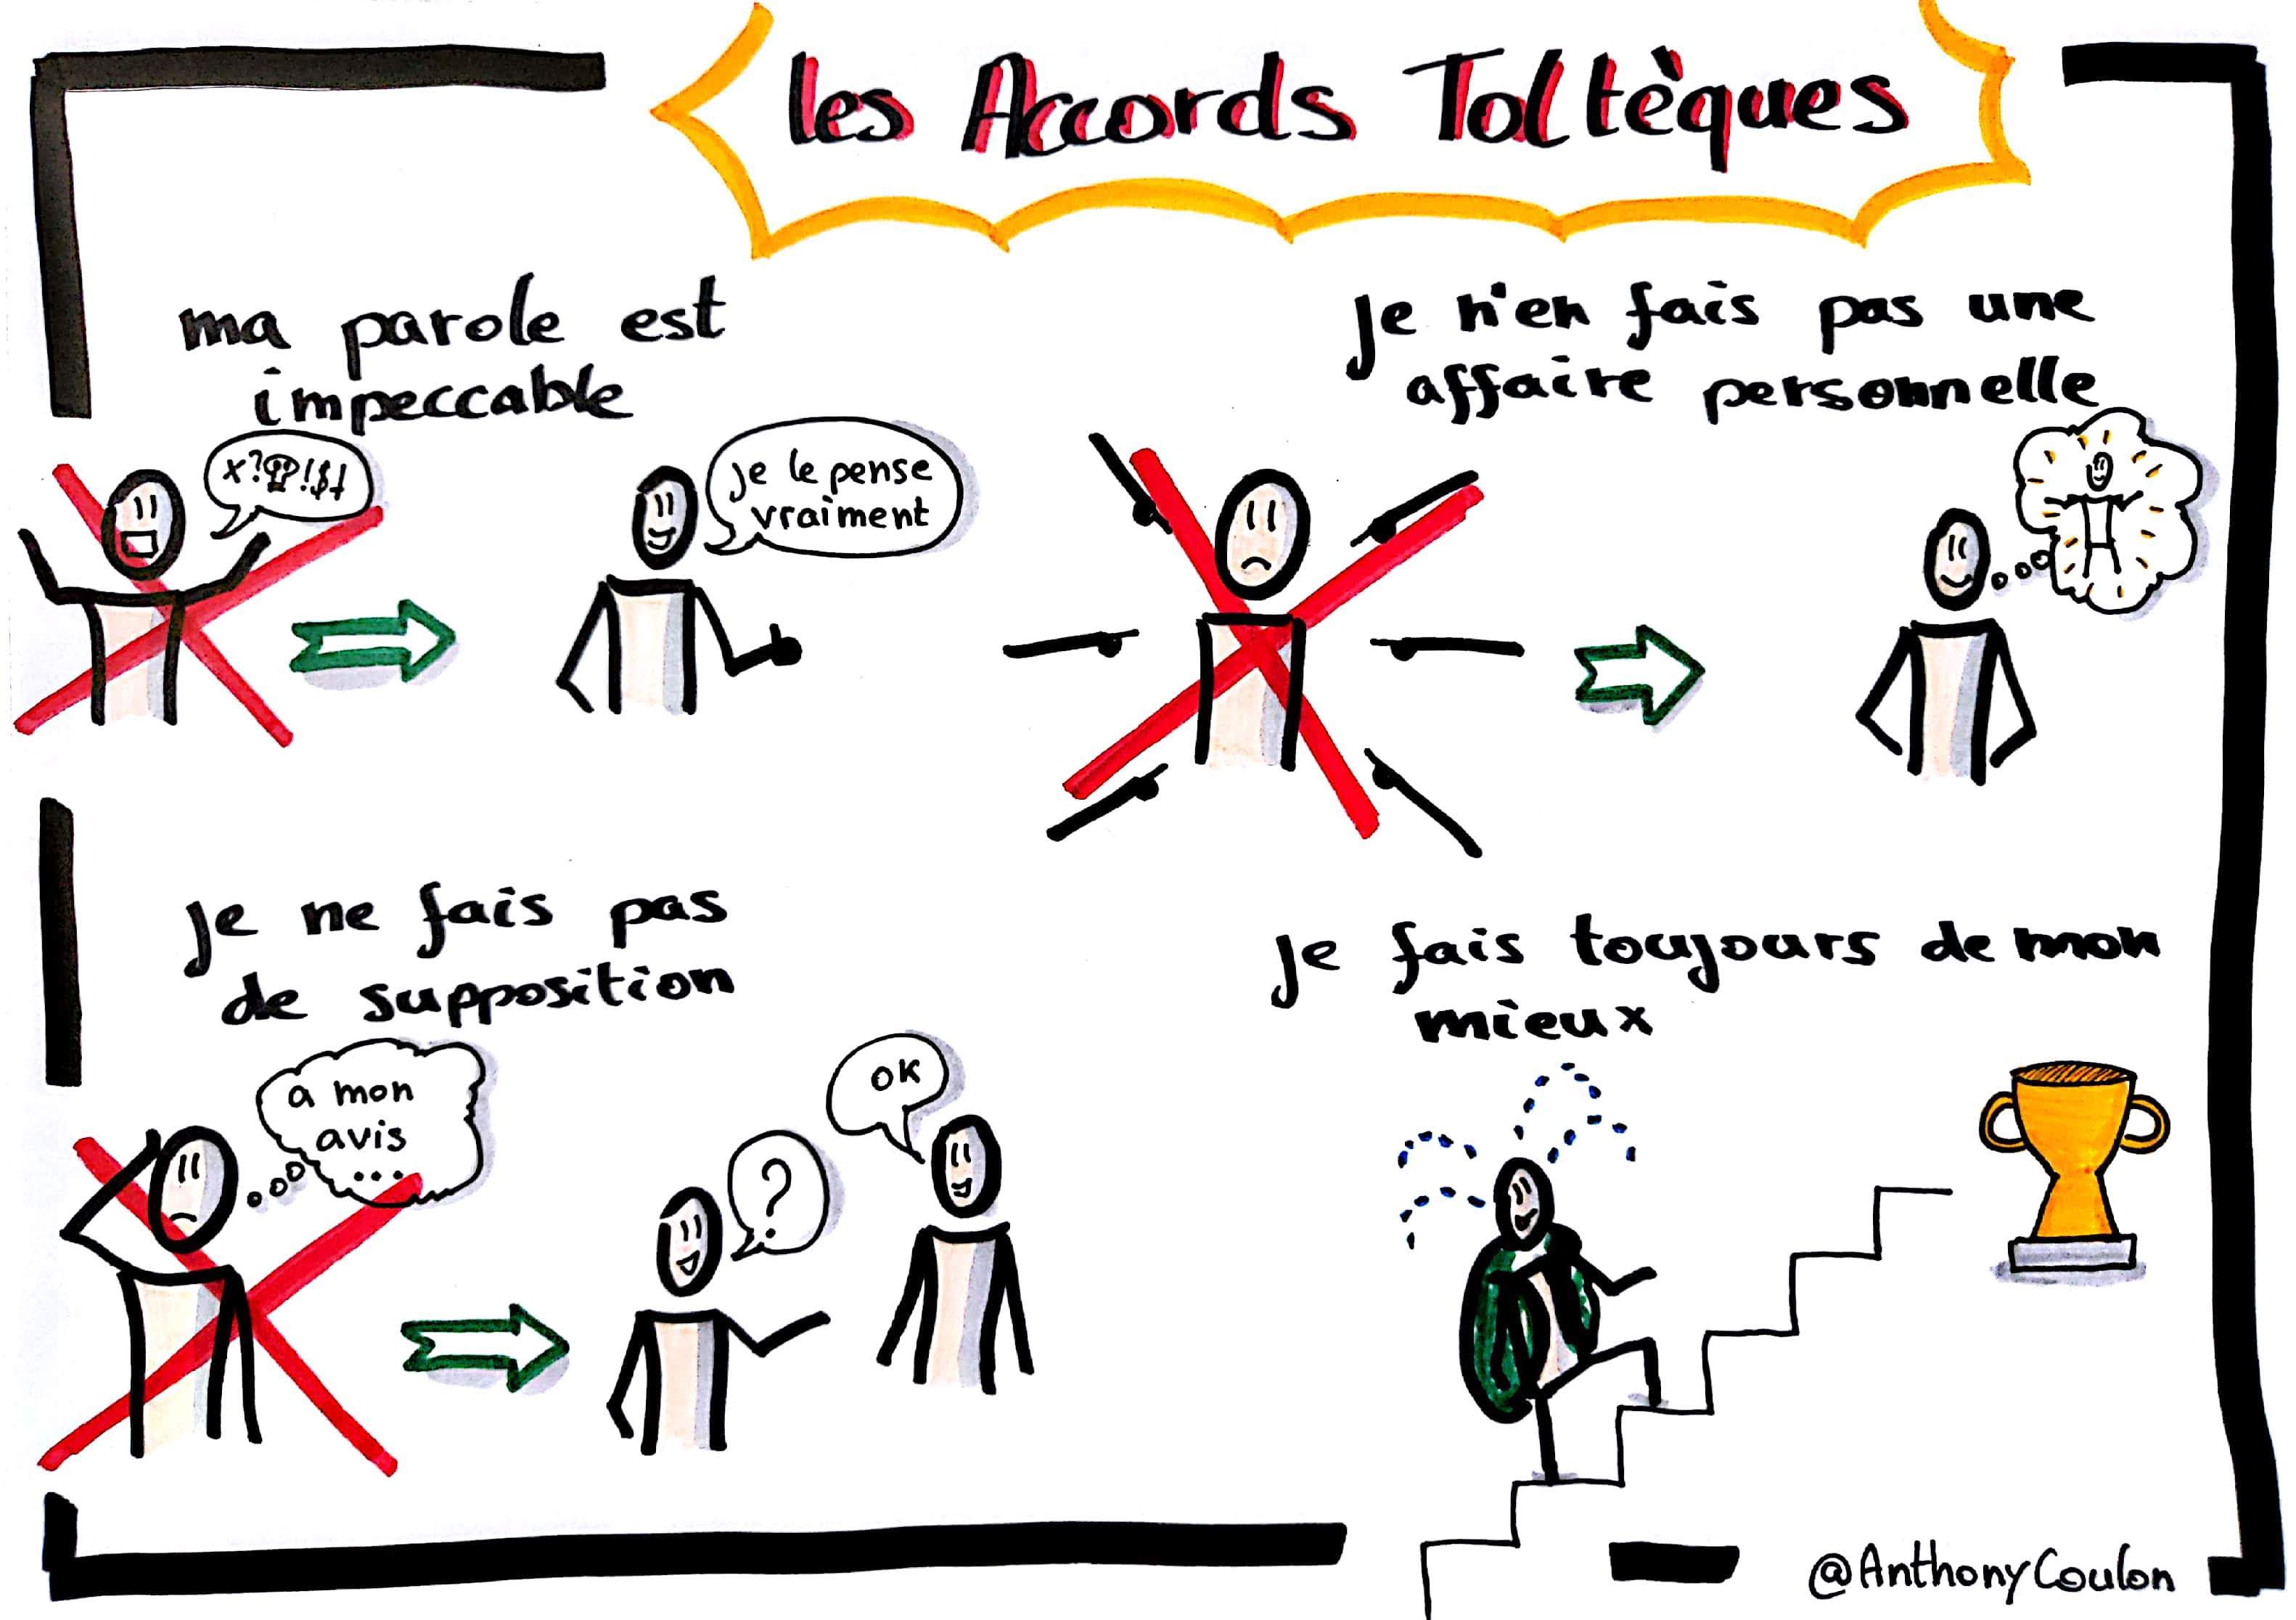 les Accords Toltèques
ma parole est
impeccable
x?!$!
je le pense
vraiment
je n'en fais pas une
affaire personnelle
je ne fais pas
de supposition
a mon
avis
...
?
OK
je fais toujours de mon
mieux
@AnthonyCoulon